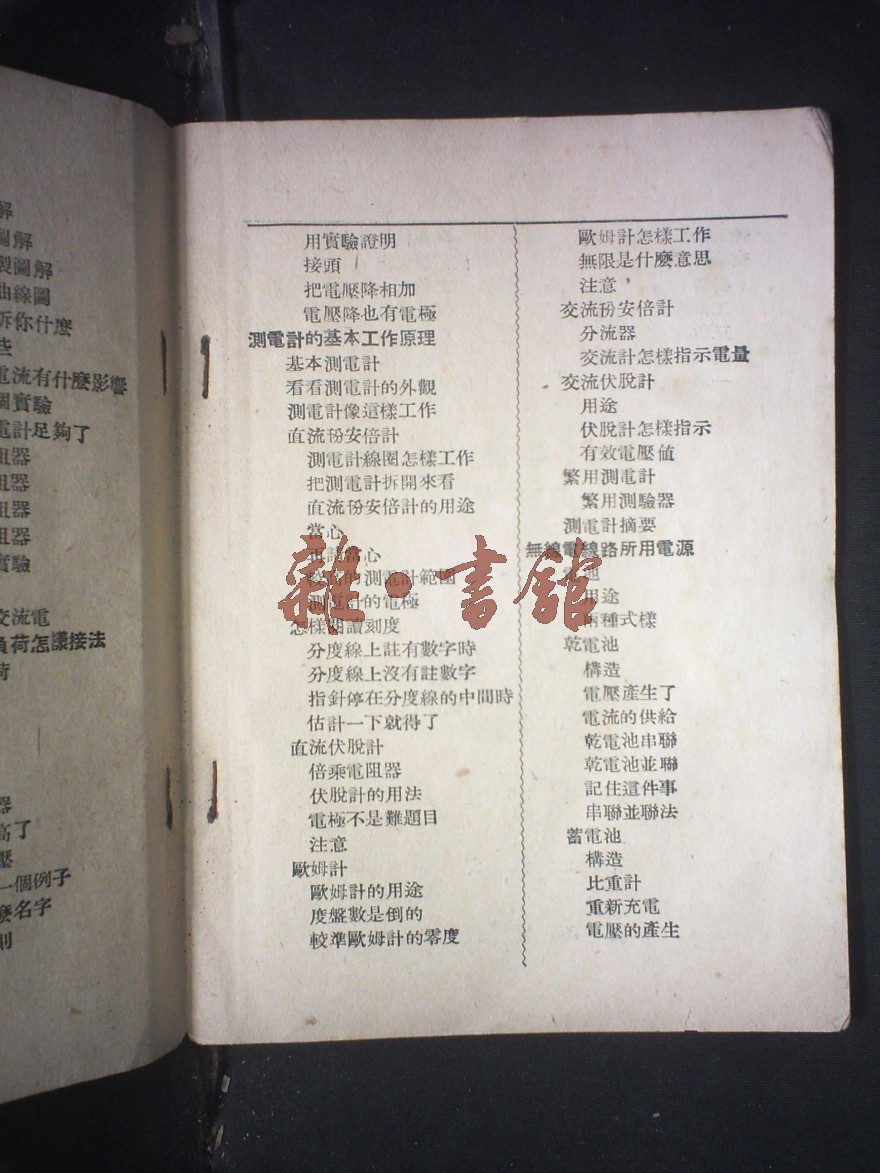 解
圖解
製圖解
曲線圖
訴你什麽
些
電流有什麽影響
個實驗
電計足夠了
阻器
阻器
阻器
阻器
實驗
交流電
負荷怎樣接法
荷
器
高了
壓
一個例子
麽名字
則
用實驗證明
接頭
把電壓降相加
電壓降也有電極
測電計的基本工作原理
基本測電計
看看測電計的外觀
測電計像這樣工作
直流份安倍計
測電計線圈怎樣工作
把測電計拆開來看
直流份安倍計的用途
當心
再請當心
較高的測電計範圍
測電計的電極
怎樣閱讀刻度
分度線上註有數字時
分度線上沒有註數字
指針停在分度線的中間時
估計一下就得了
直流伏脫計
倍乘電阻器
伏脫計的用法
電極不是難題目
注意
歐姆計
歐姆計的用途
度盤數是倒的
較準歐姆計的零度
歐姆計怎樣工作
無限是什麽意思
注意
交流份安倍計
分流器
交流計怎樣指示電量
交流伏脫計
用途
伏脫計怎樣指示
有效電壓值
繁用測電計
繁用測驗器
測電計摘要
無線電線路所用電源
電池
用途
兩種式樣
乾電池
構造
電壓產生了
電流的供給
乾電池串聯
乾電池並聯
記住這件事
串聯並聯法
蓄電池
構造
比重計
重新充電
電壓的產生
雜·書館